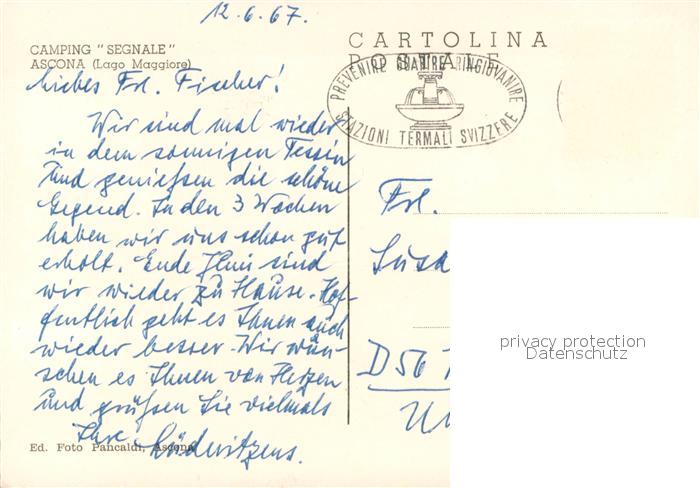 12.6.67.
CAMPING "SEGNALE"
ASCONA (Lago Maggiore)
Liebes Frl. Fischer!
Wir sind mal wieder
in dem sonnigen Tessin
und genießen die schöne
Gegend. In den 3 Wochen
haben wir uns schon gut
erholt. Ende Juni sind
wir wieder zu Hause. Hof-
fentlich geht es Ihnen auch
wieder besser. Wir wün-
schen es Ihnen von Herzen
und grüßen Sie vielmals
Ihre
Ed. Foto Pancaldi, Ascona
CARTOLINA
POSTALE
PREVENIRE GUARIRE RINGIOVANIRE
STAZIONI TERMALI SVIZZERE
Frl.
Susa
D 56
privacy protection
Datenschutz